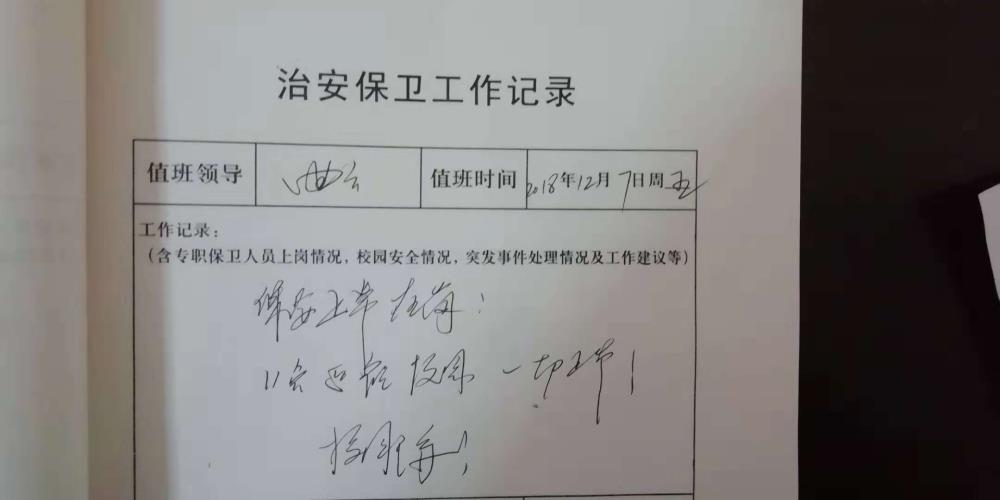 治安保卫工作记录
值班领导 值班时间 2018年12月7日周五
工作记录：
（含专职保卫人员上岗情况，校园安全情况，突发事件处理情况及工作建议等）
保安正常在岗！
校园一切正常！